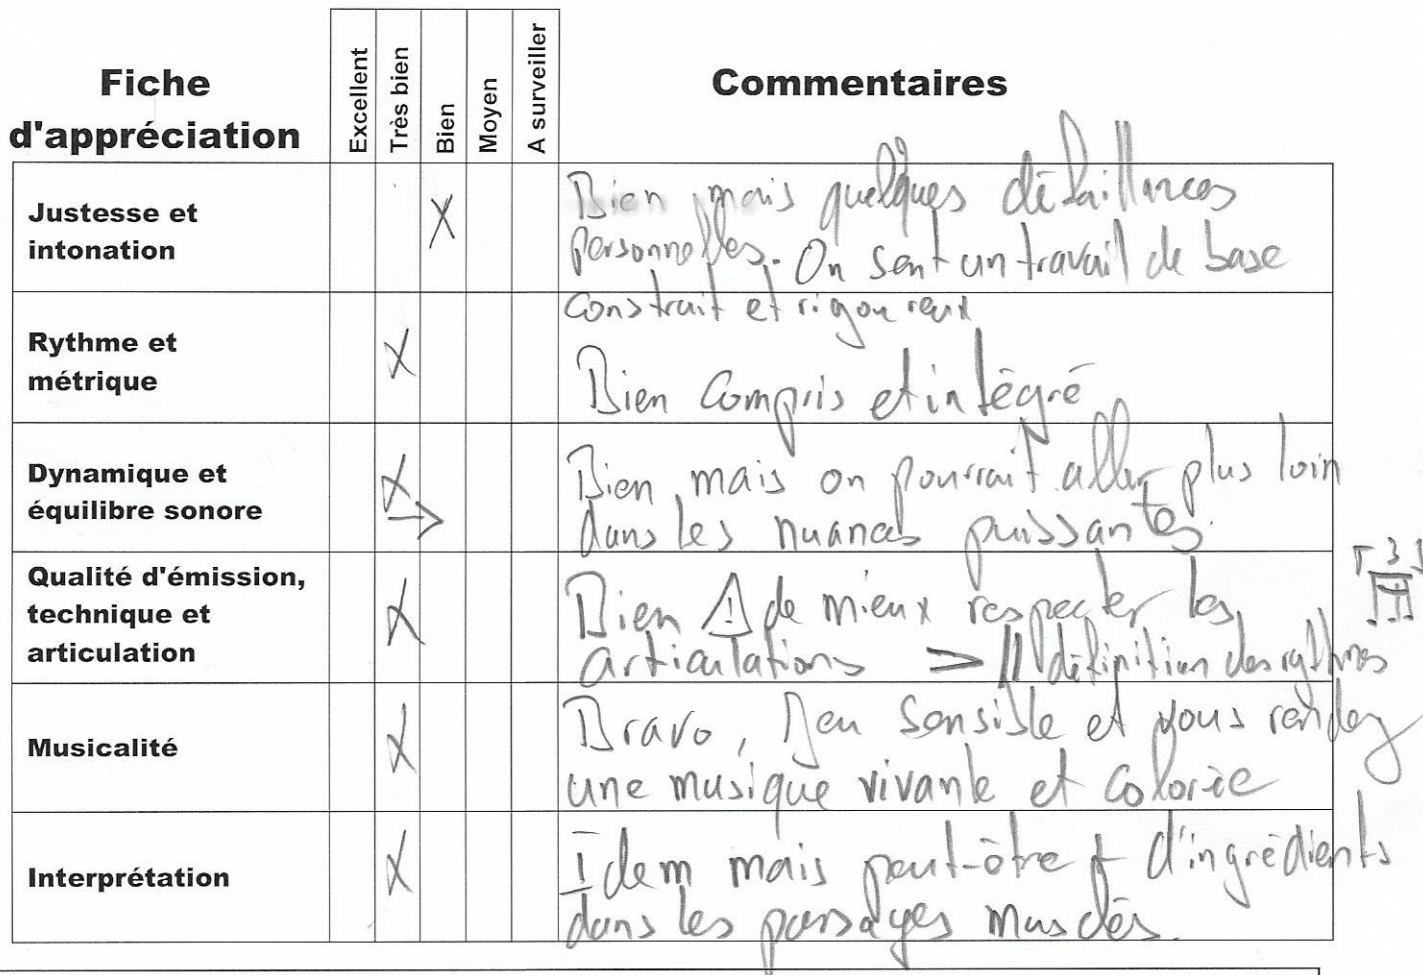 Fiche
d'appréciation
Excellent
Très bien
Bien
Moyen
A surveiller
Commentaires
Justesse et
intonation
X
Bien, mais quelques défaillances
personnelles. On sent un travail de base
construit et rigoureux
Rythme et
métrique
X
Bien compris et intégré
Dynamique et
équilibre sonore
X
Bien, mais on pourrait aller plus loin
dans les nuances puissantes.
Qualité d'émission,
technique et
articulation
X
Bien ⚠ de mieux respecter les
articulations > // définition des rythmes
3
Musicalité
X
Bravo, Jeu sensible et vous rendez
une musique vivante et colorée
Interprétation
X
Idem mais peut-être + d'ingrédients
dans les passages musclés.